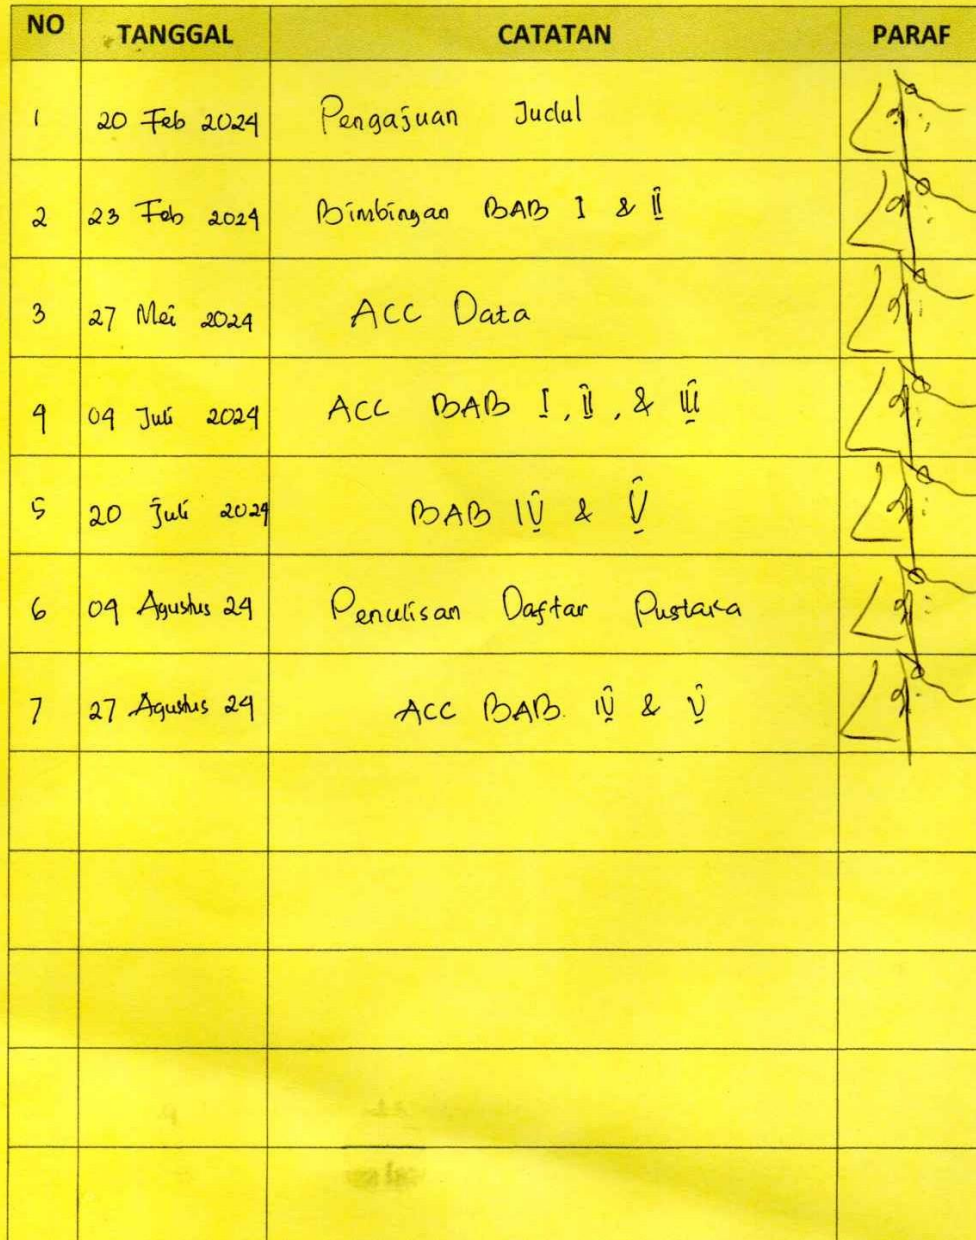 NO TANGGAL CATATAN PARAF
1 20 Feb 2024 Pengajuan Judul
2 23 Feb 2024 Bimbingan BAB I & II
3 27 Mei 2024 ACC Data
4 04 Juli 2024 ACC BAB I, II, & III
5 20 Juli 2024 BAB IV & V
6 04 Agustus 24 Penulisan Daftar Pustaka
7 27 Agustus 24 ACC BAB. IV & V